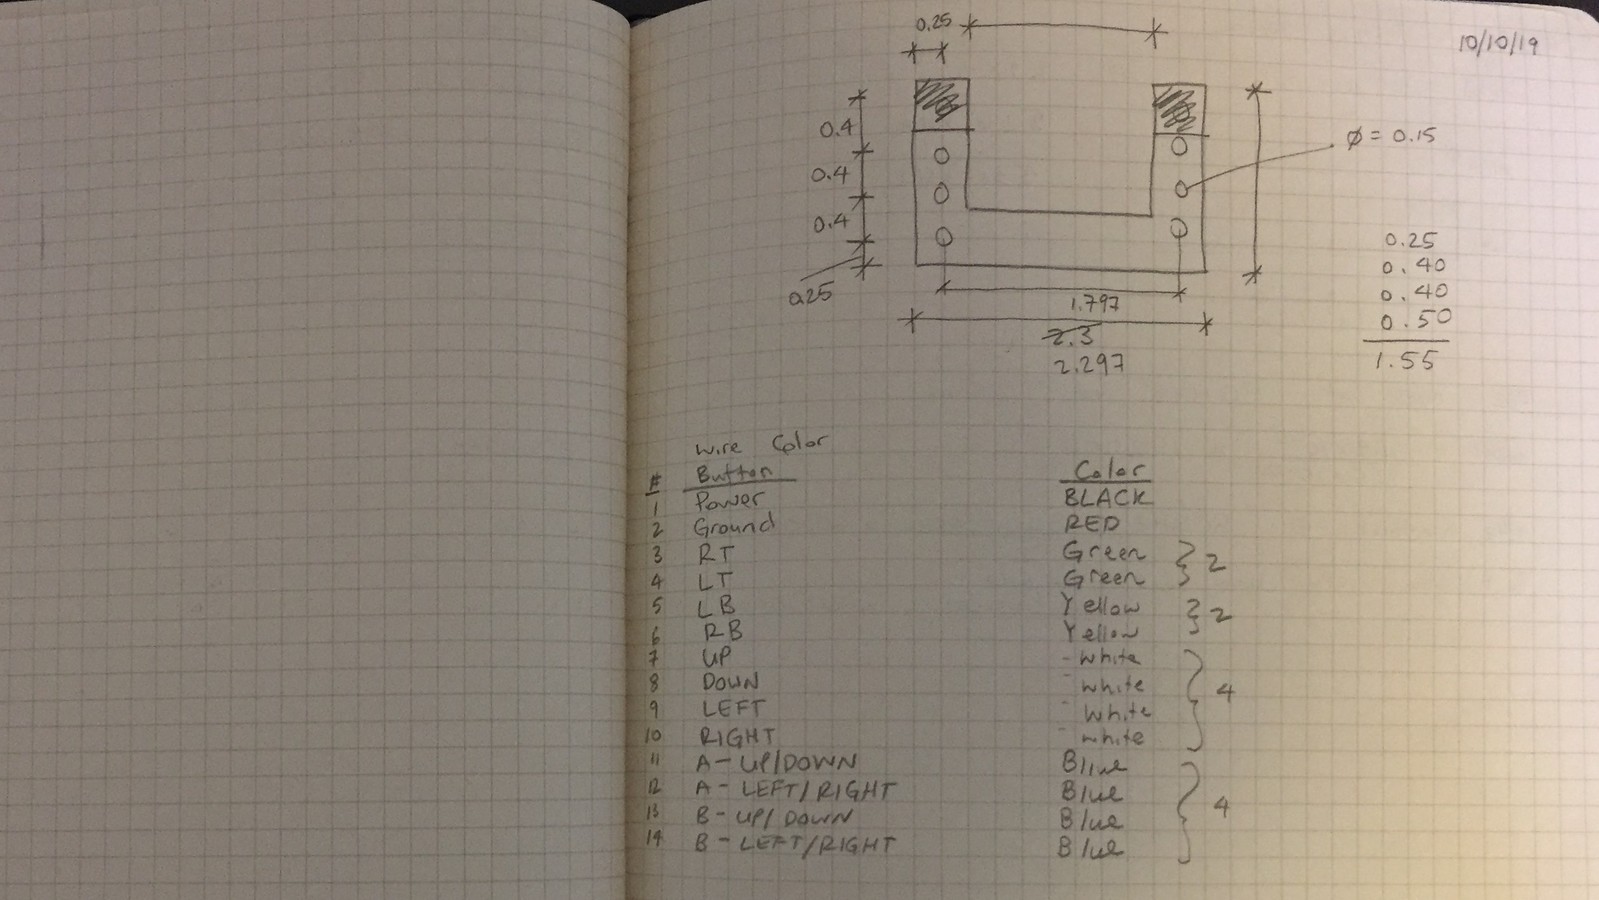 10/10/19
0.25
0.4
0.4
0.4
0.25
Ø = 0.15
1.797
2.3
2.297
0.25
0.40
0.40
0.50
1.55
Wire Color
# Button Color
1 Power BLACK
2 Ground RED
3 RT Green } 2
4 LT Green
5 LB Yellow } 2
6 RB Yellow
7 UP - white } 4
8 DOWN - white
9 LEFT - white
10 RIGHT - white
11 A - UP/DOWN Blue } 4
12 A - LEFT/RIGHT Blue
13 B - UP/DOWN Blue
14 B - LEFT/RIGHT Blue